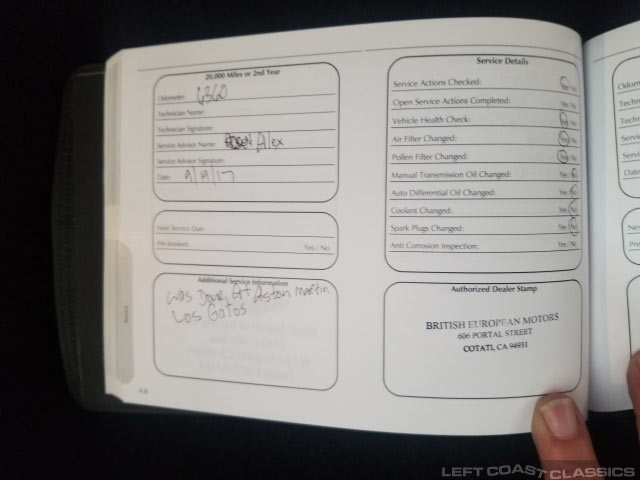 20,000 Miles or 2nd Year
Odometer: 6360
Technician Name:
Technician Signature:
Service Advisor Name: Alex
Service Advisor Signature:
Date: 9/19/17
Next Service Due:
Pre-booked: Yes / No
Additional Service Information
Was Done At Aston Martin
Los Gatos
Service Details
Service Actions Checked: Yes / No
Open Service Actions Completed: Yes / No
Vehicle Health Check: Yes / No
Air Filter Changed: Yes / No
Pollen Filter Changed: Yes / No
Manual Transmission Oil Changed: Yes / No
Auto Differential Oil Changed: Yes / No
Coolant Changed: Yes / No
Spark Plugs Changed: Yes / No
Anti Corrosion Inspection: Yes / No
Authorized Dealer Stamp
BRITISH EUROPEAN MOTORS
606 PORTAL STREET
COTATI, CA 94931
Service
LEFT COAST CLASSICS